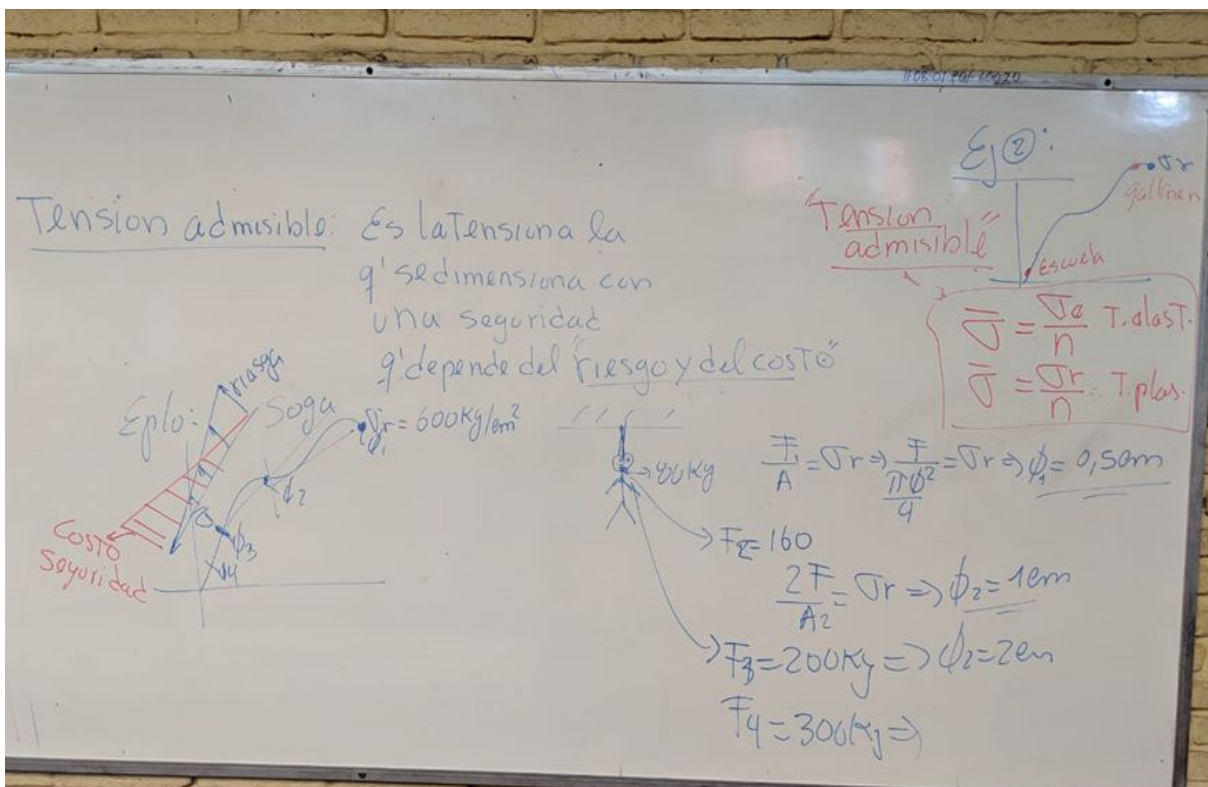 Tension admisible: Es la Tensiona la
q' se dimensiona con
una seguridad
q' depende del "riesgo y del costo"
Ej ②:
σr
gallinen
escuela
"Tension
admisible"
σ̅ = σe/n T. elast.
σ̅ = σr/n T. plas.
Eplo:
riesgo
Soga
σr = 600 Kg/cm²
ϕ1
ϕ2
ϕ3
ϕ4
σ
Costo
Seguridad
80 Kg
F1/A = σr ⇒ F/(πϕ²/4) = σr ⇒ ϕ1 = 0,5 cm
F2 = 160
2F/A2 = σr ⇒ ϕ2 = 1 cm
F3 = 200 Kg ⇒ ϕ2 = 2 cm
F4 = 300 Kg ⇒